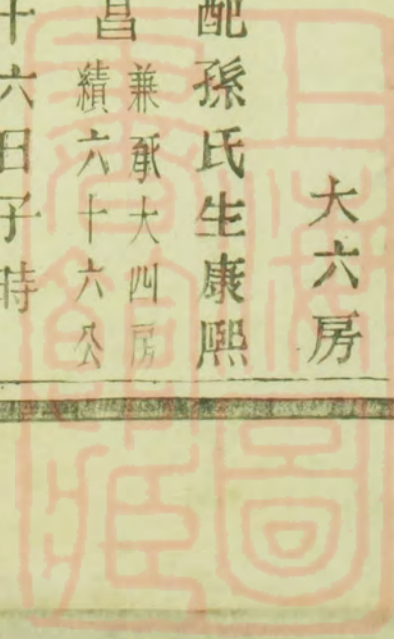 大六房
配孫氏生康熙
昌
兼承大四房
績六十六公
十六日子時
上海圖書館藏